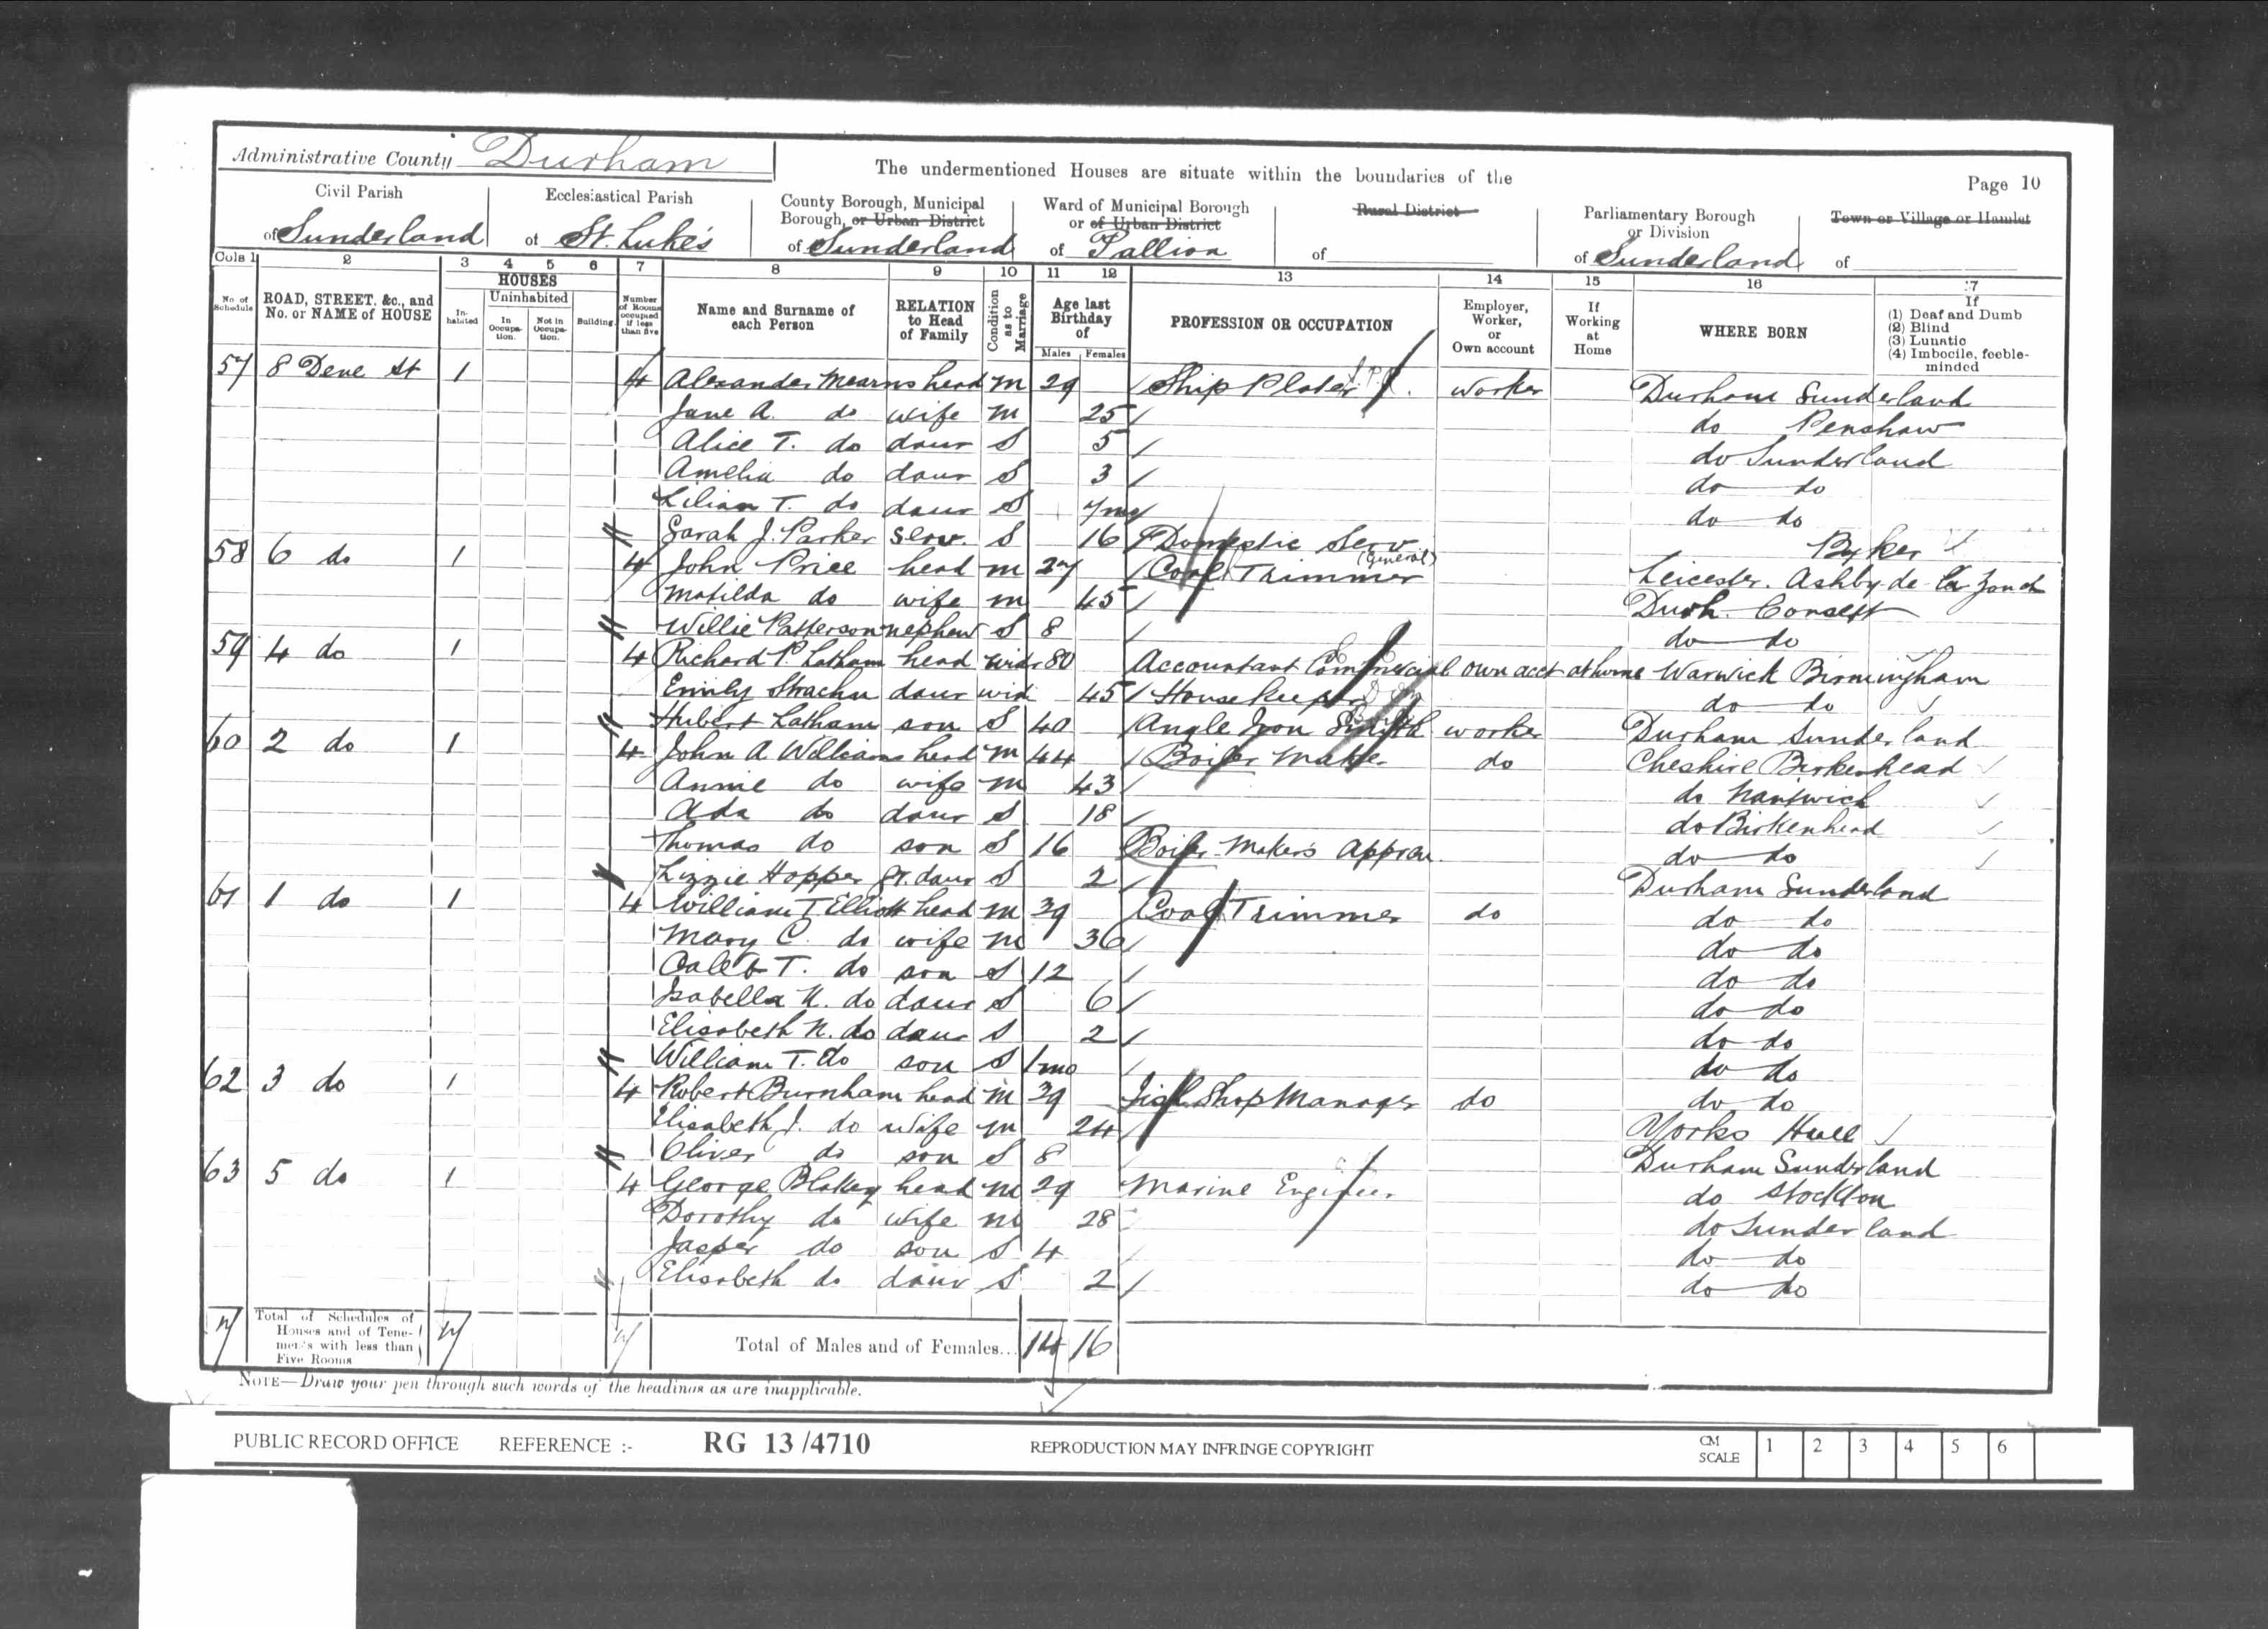 Administrative County Durham
The undermentioned Houses are situate within the boundaries of the
Page 10
Civil Parish of Sunderland
Ecclesiastical Parish of St. Luke's
County Borough, Municipal Borough, or Urban District of Sunderland
Ward of Municipal Borough or of Urban District of Pallion
Rural District of
Parliamentary Borough or Division of Sunderland
Town or Village or Hamlet of
Cols 1 2 3 4 5 6 7 8 9 10 11 12 13 14 15 16 17
No. of Schedule
ROAD, STREET, &c., and No. or NAME of HOUSE
HOUSES
Inhabited
Uninhabited
In Occupation.
Not in Occupation.
Building
Number of Rooms occupied if less than five
Name and Surname of each Person
RELATION to Head of Family
Condition as to Marriage
Age last Birthday of
Males Females
PROFESSION OR OCCUPATION
Employer, Worker, or Own account
If Working at Home
WHERE BORN
If (1) Deaf and Dumb (2) Blind (3) Lunatic (4) Imbecile, feeble-minded
57 8 Dene St 1 4 Alexander Mearns head m 29 Ship Plater worker Durham Sunderland
Jane A. do wife m 25 do Penshaw
Alice T. do daur S 5 do Sunderland
Amelia do daur S 3 do do
Lilian T. do daur S 7mo do do
Sarah J. Parker serv. S 16 Domestic Serv (General) Byker
58 6 do 1 4 John Price head m 27 Coal Trimmer Leicester. Ashby de la Zouch
Matilda do wife m 45 Durh. Consett
Willie Patterson nephew S 8 do do
59 4 do 1 4 Richard P. Latham head widr 80 Accountant Commercial own acct at home Warwick Birmingham
Emily Strachn daur wid 45 Housekeeper do do
Hubert Latham son S 40 Angle Iron Smith worker Durham Sunderland
60 2 do 1 4 John A Williams head m 44 Boiler Maker do Cheshire Birkenhead
Annie do wife m 43 do Nantwich
Ada do daur S 18 do Birkenhead
Thomas do son S 16 Boiler Maker's Appren. do do
Lizzie Hopper gr. daur S 2 Durham Sunderland
61 1 do 1 4 William T Elliott head m 39 Coal Trimmer do do do
Mary C. do wife m 36 do do
Caleb T. do son S 12 do do
Isabella N. do daur S 6 do do
Elisabeth N. do daur S 2 do do
William T. do son S 1mo do do
62 3 do 1 4 Robert Burnham head m 39 Shop Manager do do do
Elisabeth J. do wife m 24 Yorks Hull
Oliver do son S 8 Durham Sunderland
63 5 do 1 4 George Blakey head m 29 Marine Engineer do Stockton
Dorothy do wife m 28 do Sunderland
Jasper do son S 4 do do
Elisabeth do daur S 2 do do
7 Total of Schedules of Houses and of Tenements with less than Five Rooms 7 7 Total of Males and of Females... 14 16
NOTE—Draw your pen through such words of the headings as are inapplicable.
PUBLIC RECORD OFFICE REFERENCE :- RG 13 /4710 REPRODUCTION MAY INFRINGE COPYRIGHT CM SCALE 1 2 3 4 5 6